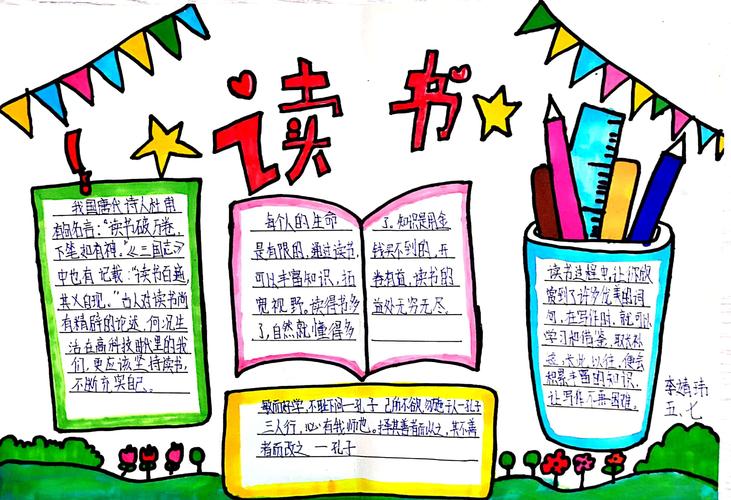 读书
我国唐代诗人杜甫
有句名言：“读书破万卷，
下笔如有神。”《三国志》
中也有记载：“读书百遍，
其义自现。”古人对读书尚
有精辟的论述，何况生
活在高科技时代里的我
们，更应该坚持读书，
不断充实自己。
每个人的生命
是有限的，通过读书，
可以丰富知识，拓
宽视野。读得书多
了，自然就懂得多
了。知识是用金
钱买不到的，开
卷有益，读书的
益处无穷无尽。
读书过程中，让你欣
赏到了许多优美的词
句，在写作时，就可以
学习和借鉴，取长补
短，长此以往，便会
积累丰富的知识，
让写作不再困难。
敏而好学，不耻下问一孔子 己所不欲，勿施于人一孔子
三人行，必有我师也。择其善者而从之，其不善
者而改之 一孔子
五、七